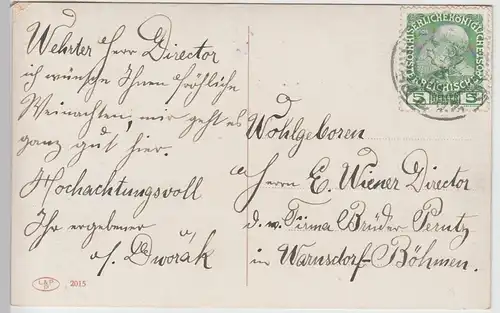 Wehrter Herr Director
ich wünsche Ihnen fröhliche
Weinachten, mir geht es
ganz gut hier.
Hochachtungsvoll
Ihr ergebener
a/. Dwořák
2015
5
Wohlgeboren
Herrn E. Wiener Director
d. w. Firma Brüder Perutz
in Warnsdorf-Böhmen.